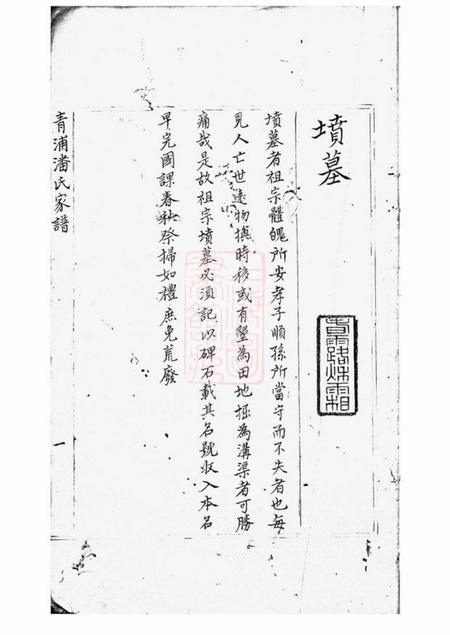 墳墓
春露秋霜
墳墓者祖宗體魄所安孝子順孫所當守而不失者也每
見人亡世遠物換時移或有墾為田地掘為溝渠者可勝
痛哉是故祖宗墳墓必須記以碑石載其名號收入本名
早完國課春秋祭掃如禮庶免荒廢
青浦潘氏家譜
一